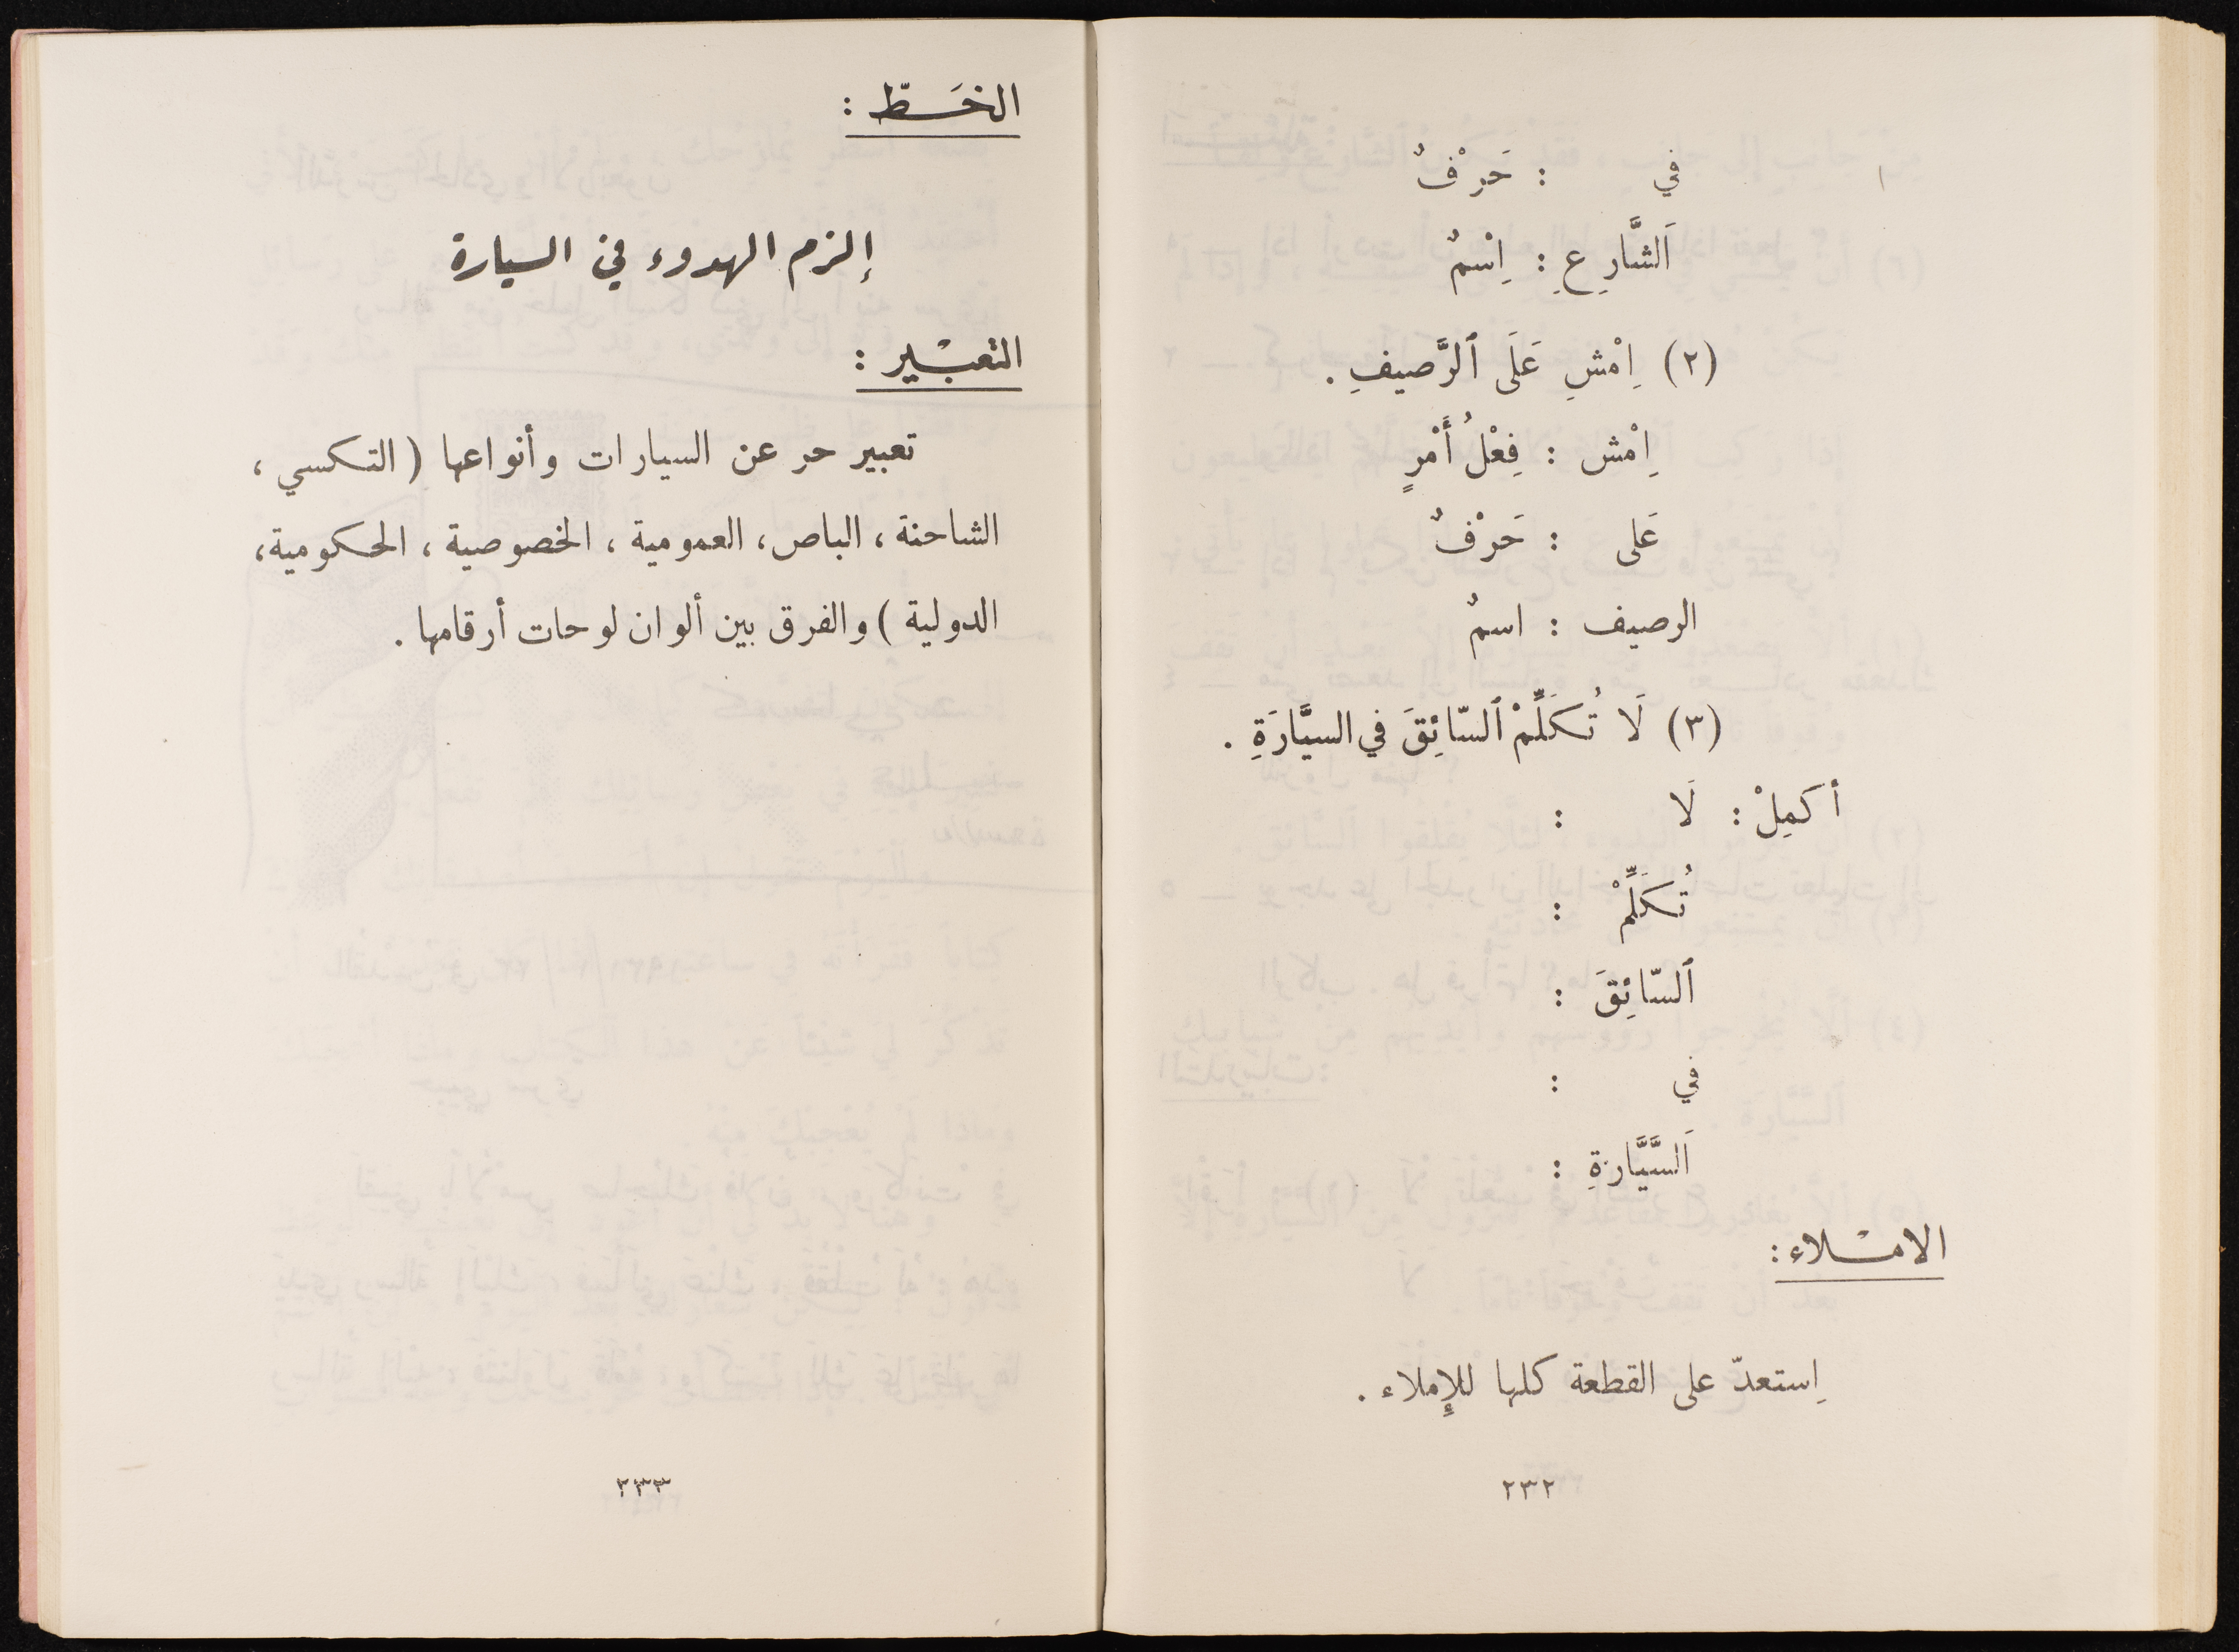 في : حَرْفٌ
اَلشَّارِعِ : اِسْمٌ
(٢) اِمْشِ عَلَى ٱلرَّصيفِ .
اِمْش : فِعْلُ أَمْرٍ
عَلى : حَرْفٌ
الرصيف : اسمٌ
(٣) لَا تُكَلِّمْ ٱلسّائِقَ في السيَّارَةِ .
أكمِلْ : لَا :
تُكَلِّمْ :
ٱلسّائِقَ :
في :
اَلسَّيَّارةِ :
الامْلاء :
اِستعدّ على القطعة كلها للإِملاء .
٢٣٢
الخَطّ :
إلزم الهدوء في السيارة
التعبْير :
تعبير حر عن السيارات وأنواعها ( التكسي ،
الشاحنة ، الباص ، العمومية ، الخصوصية ، الحكومية ،
الدولية ) والفرق بين ألوان لوحات أرقامها .
٢٣٣